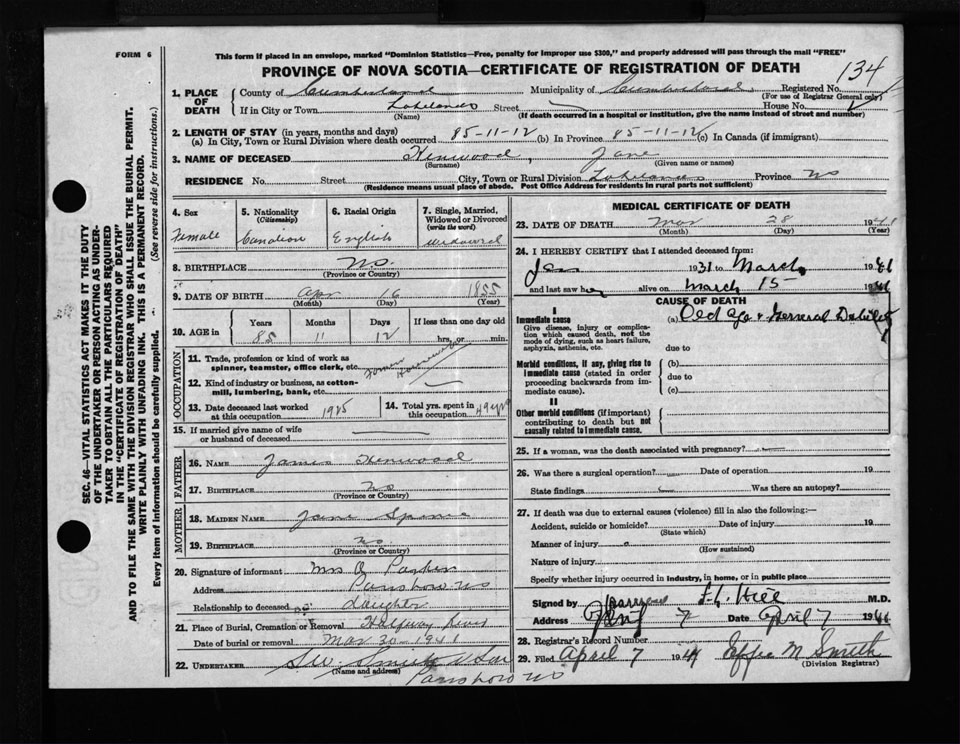 FORM 6
This form if placed in an envelope, marked "Dominion Statistics—Free, penalty for improper use $300," and properly addressed will pass through the mail "FREE"
PROVINCE OF NOVA SCOTIA—CERTIFICATE OF REGISTRATION OF DEATH
134
1. PLACE OF DEATH
County of Cumberland Municipality of Cumberland Registered No.
(For use of Registrar General only)
If in City or Town Lakelands Street House No.
(Name) (If death occurred in a hospital or institution, give the name instead of street and number)
2. LENGTH OF STAY (in years, months and days)
(a) In City, Town or Rural Division where death occurred 85-11-12 (b) In Province 85-11-12 (c) In Canada (if immigrant)
3. NAME OF DECEASED Henwood, Jane
(Surname) (Given name or names)
RESIDENCE No. Street City, Town or Rural Division Lakelands Province NS
(Residence means usual place of abode. Post Office Address for residents in rural parts not sufficient)
4. Sex Female
5. Nationality (Citizenship) Canadian
6. Racial Origin English
7. Single, Married, Widowed or Divorced (write the word) widowed
8. BIRTHPLACE NS.
(Province or Country)
9. DATE OF BIRTH Apr 16 1855
(Month) (Day) (Year)
10. AGE in Years Months Days If less than one day old
85 11 12 hrs. or min.
OCCUPATION
11. Trade, profession or kind of work as spinner, teamster, office clerk, etc.
12. Kind of industry or business, as cotton-mill, lumbering, bank, etc. —
13. Date deceased last worked at this occupation 1925
14. Total yrs. spent in this occupation 49 yrs
15. If married give name of wife or husband of deceased
FATHER
16. NAME James Henwood
17. BIRTHPLACE NS
(Province or Country)
MOTHER
18. MAIDEN NAME Jane
19. BIRTHPLACE NS
(Province or Country)
20. Signature of informant Mrs
Address Parrsboro NS
Relationship to deceased daughter
21. Place of Burial, Cremation or Removal Halfway River
Date of burial or removal Mar 30 1941
22. UNDERTAKER Smith & Son
(Name and address)
Parrsboro NS
MEDICAL CERTIFICATE OF DEATH
23. DATE OF DEATH Mar 28 1941
(Month) (Day) (Year)
24. I HEREBY CERTIFY that I attended deceased from:
Jan 1931 to March 1941
and last saw her alive on March 15 1941
CAUSE OF DEATH
I
Immediate cause (a) Old age & General Debility
Give disease, injury or complication which caused death, not the mode of dying, such as heart failure, asphyxia, asthenia, etc.
due to
Morbid conditions, if any, giving rise to immediate cause (stated in order proceeding backwards from immediate cause).
(b)
due to
(c)
II
Other morbid conditions (if important) contributing to death but not causally related to immediate cause.
25. If a woman, was the death associated with pregnancy?
26. Was there a surgical operation? Date of operation 19
State findings Was there an autopsy?
27. If death was due to external causes (violence) fill in also the following:—
Accident, suicide or homicide? Date of injury 19
(State which)
Manner of injury
(How sustained)
Nature of injury
Specify whether injury occurred in industry, in home, or in public place
Signed by Hill M.D.
Address Date April 7 1941
28. Registrar's Record Number
29. Filed April 7 1941 Effie M Smith
(Division Registrar)
SEC. 46—VITAL STATISTICS ACT MAKES IT THE DUTY
OF THE UNDERTAKER OR PERSON ACTING AS UNDER-
TAKER TO OBTAIN ALL THE PARTICULARS REQUIRED
IN THE "CERTIFICATE OF REGISTRATION OF DEATH"
AND TO FILE THE SAME WITH THE DIVISION REGISTRAR WHO SHALL ISSUE THE BURIAL PERMIT.
WRITE PLAINLY WITH UNFADING INK. THIS IS A PERMANENT RECORD.
Every item of information should be carefully supplied. (See reverse side for instructions.)